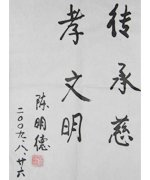 传承慈
孝文明
陈明德
二〇〇九、八、廿六